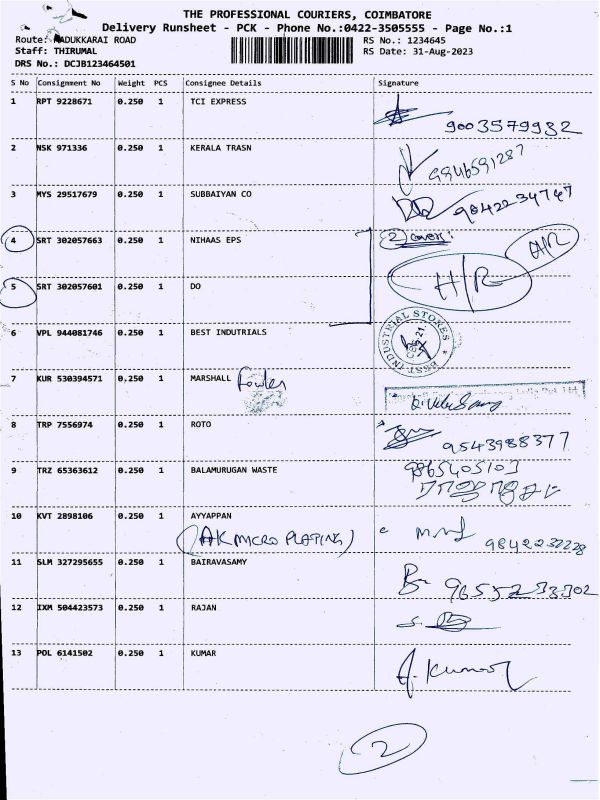 THE PROFESSIONAL COURIERS, COIMBATORE
Delivery Runsheet - PCK - Phone No.:0422-3505555 - Page No.:1
Route: MADUKKARAI ROAD RS No.: 1234645
Staff: THIRUMAL RS Date: 31-Aug-2023
DRS No.: DCJB123464501
S No Consignment No Weight PCS Consignee Details Signature
1 RPT 9228671 0.250 1 TCI EXPRESS
9003579932
2 NSK 971336 0.250 1 KERALA TRASN
9946591287
3 MYS 29517679 0.250 1 SUBBAIYAN CO
9842234747
4 SRT 302057663 0.250 1 NIHAAS EPS 2 covers:
H/R
5 SRT 302057601 0.250 1 DO H/R
6 VPL 944081746 0.250 1 BEST INDUTRIALS BEST INDUSTRIAL STORES
7 KUR 530394571 0.250 1 MARSHALL Fowler
8 TRP 7556974 0.250 1 ROTO
9543988377
9 TRZ 65363612 0.250 1 BALAMURUGAN WASTE 9865405103
10 KVT 2898106 0.250 1 AYYAPPAN
(AK MICRO PLATING) 9842232228
11 SLM 327295655 0.250 1 BAIRAVASAMY
9655233302
12 IXM 504423573 0.250 1 RAJAN
13 POL 6141502 0.250 1 KUMAR
A. Kumar
2